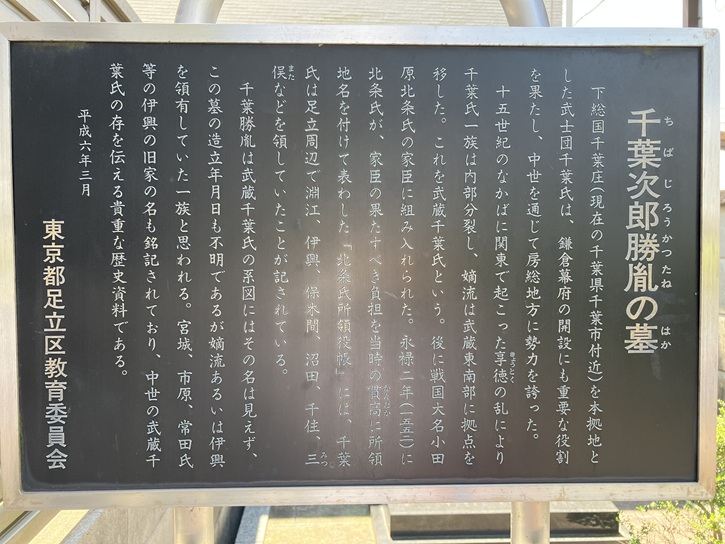 ちばじろうかつたね はか
千葉次郎勝胤の墓
下総国千葉庄(現在の千葉県千葉市付近)を本拠地と
した武士団千葉氏は、鎌倉幕府の開設にも重要な役割
を果たし、中世を通じて房総地方に勢力を誇った。
十五世紀のなかばに関東で起こった享徳の乱により
千葉氏一族は内部分裂し、嫡流は武蔵東南部に拠点を
移した。これを武蔵千葉氏という。後に戦国大名小田
原北条氏の家臣に組み入れられた。永禄二年(一五五九)に
北条氏が、家臣の果たすべき負担を当時の貫高に所領
地名を付けて表わした『北条氏所領役帳』には、千葉
氏は足立周辺で淵江、伊興、保木間、沼田、千住、三
俣などを領していたことが記されている。
千葉勝胤は武蔵千葉氏の系図にはその名は見えず、
この墓の造立年月日も不明であるが嫡流あるいは伊興
を領有していた一族と思われる。宮城、市原、常田氏
等の伊興の旧家の名も銘記されており、中世の武蔵千
葉氏の存を伝える貴重な歴史資料である。
平成六年三月
東京都足立区教育委員会